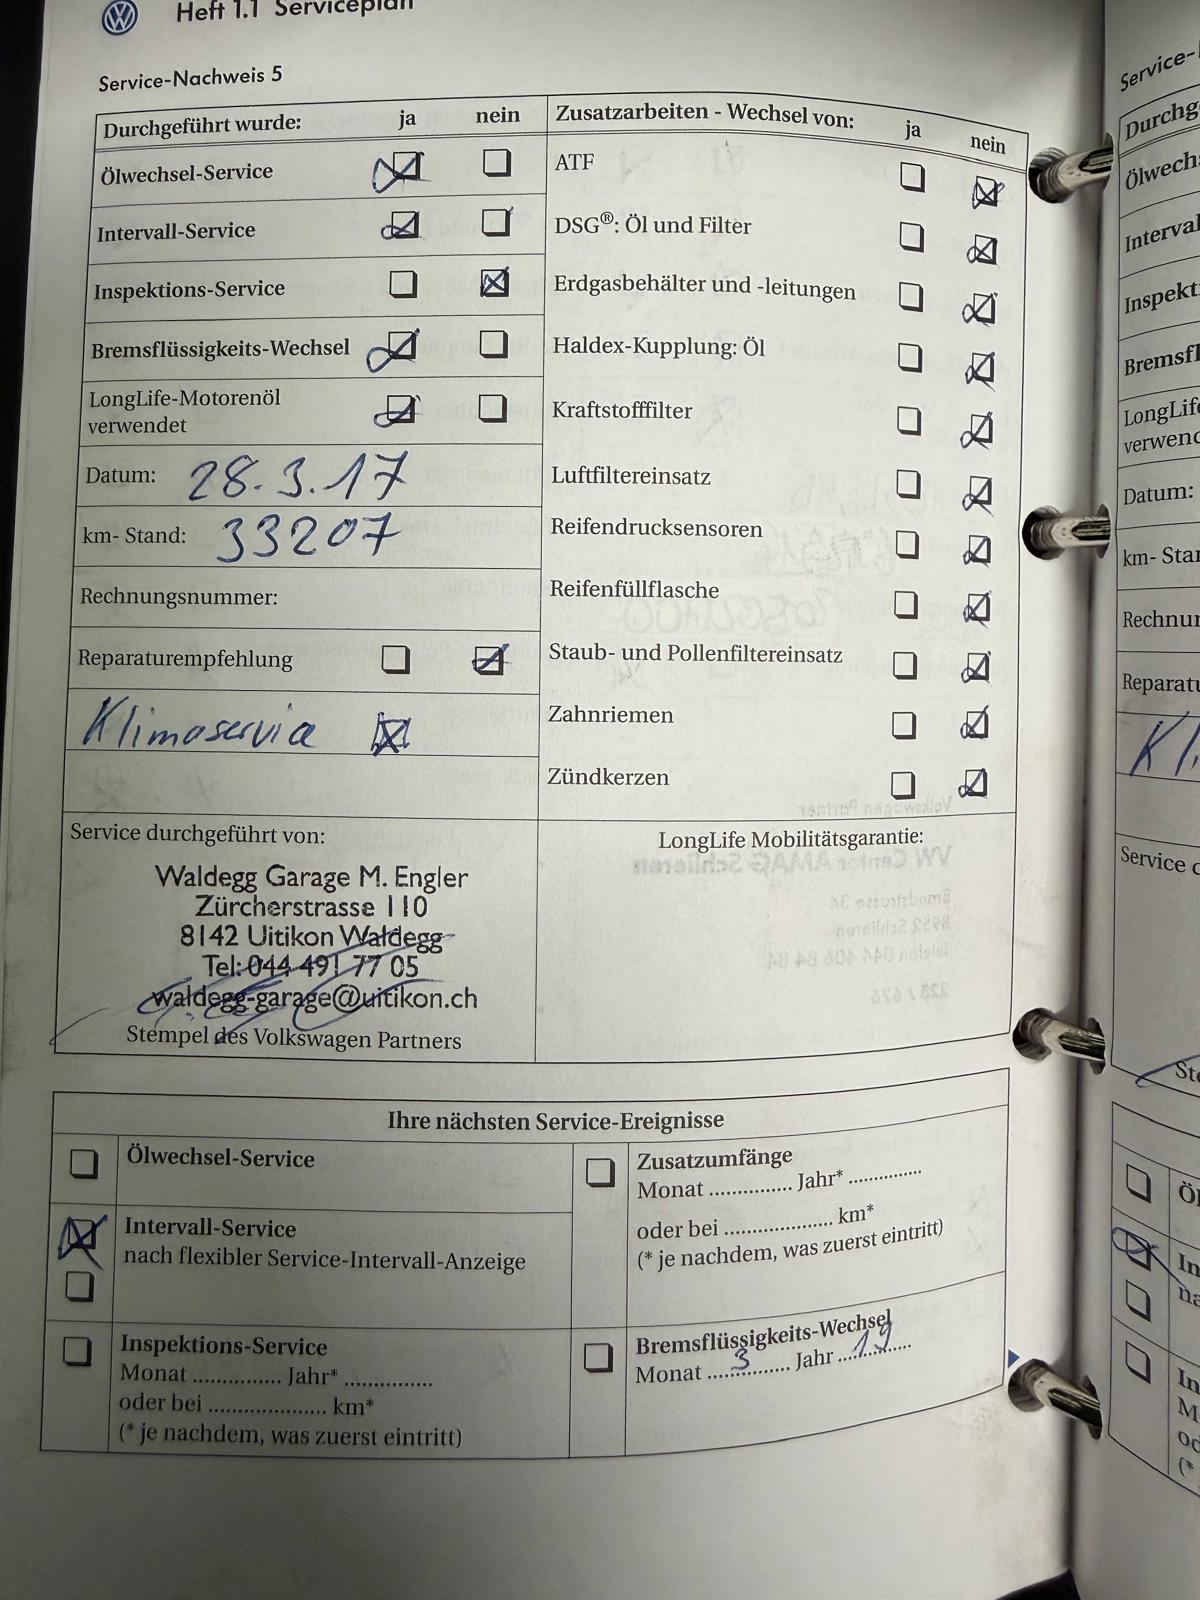 Heft 1.1 Serviceplan
Service-Nachweis 5
Durchgeführt wurde: ja nein
Ölwechsel-Service
Intervall-Service
Inspektions-Service
Bremsflüssigkeits-Wechsel
LongLife-Motorenöl
verwendet
Datum: 28.3.17
km- Stand: 33207
Rechnungsnummer:
Reparaturempfehlung
Klimaservice
Zusatzarbeiten - Wechsel von: ja nein
ATF
DSG®: Öl und Filter
Erdgasbehälter und -leitungen
Haldex-Kupplung: Öl
Kraftstofffilter
Luftfiltereinsatz
Reifendrucksensoren
Reifenfüllflasche
Staub- und Pollenfiltereinsatz
Zahnriemen
Zündkerzen
Service durchgeführt von:
Waldegg Garage M. Engler
Zürcherstrasse 110
8142 Uitikon Waldegg
Tel: 044 491 77 05
waldegg-garage@uitikon.ch
Stempel des Volkswagen Partners
LongLife Mobilitätsgarantie:
Ihre nächsten Service-Ereignisse
Ölwechsel-Service
Intervall-Service
nach flexibler Service-Intervall-Anzeige
Inspektions-Service
Monat ............... Jahr* ...............
oder bei .................... km*
(* je nachdem, was zuerst eintritt)
Zusatzumfänge
Monat ............... Jahr* .............
oder bei .................... km*
(* je nachdem, was zuerst eintritt)
Bremsflüssigkeits-Wechsel
Monat ...3... Jahr ...19...
Service-
Datum:
Service